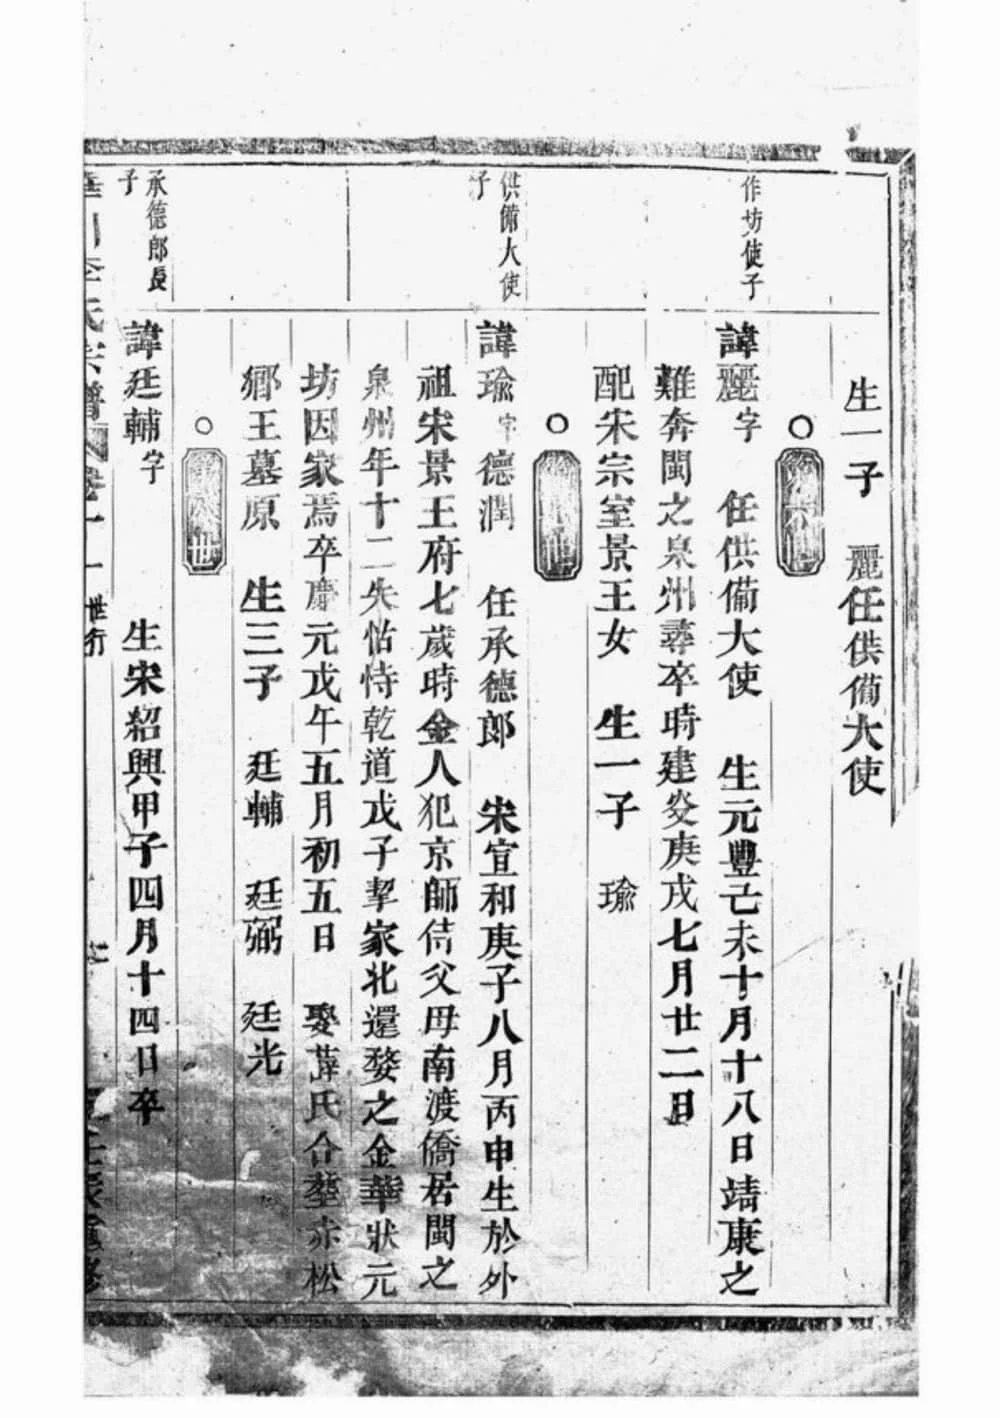 生一子 麗任供備大使
作坊使子
諱麗字 任供備大使 生元豐己未十月十八日靖康之
難奔閩之泉州尋卒時建炎庚戌七月廿二日
配宋宗室景王女 生一子 瑜
供備大使
子
諱瑜字德潤 任承德郎 宋宣和庚子八月丙申生於外
祖宋景王府七歲時金人犯京師偕父母南渡僑居閩之
泉州年十二失怙恃乾道戊子挈家北還婺之金華狀元
坊因家焉卒慶元戊午五月初五日 娶薛氏合塟赤松
鄉王墓原 生三子 廷輔 廷弼 廷光
世
承德郎長
子
諱廷輔字 生宋紹興甲子四月十四日卒
李氏宗譜 世行